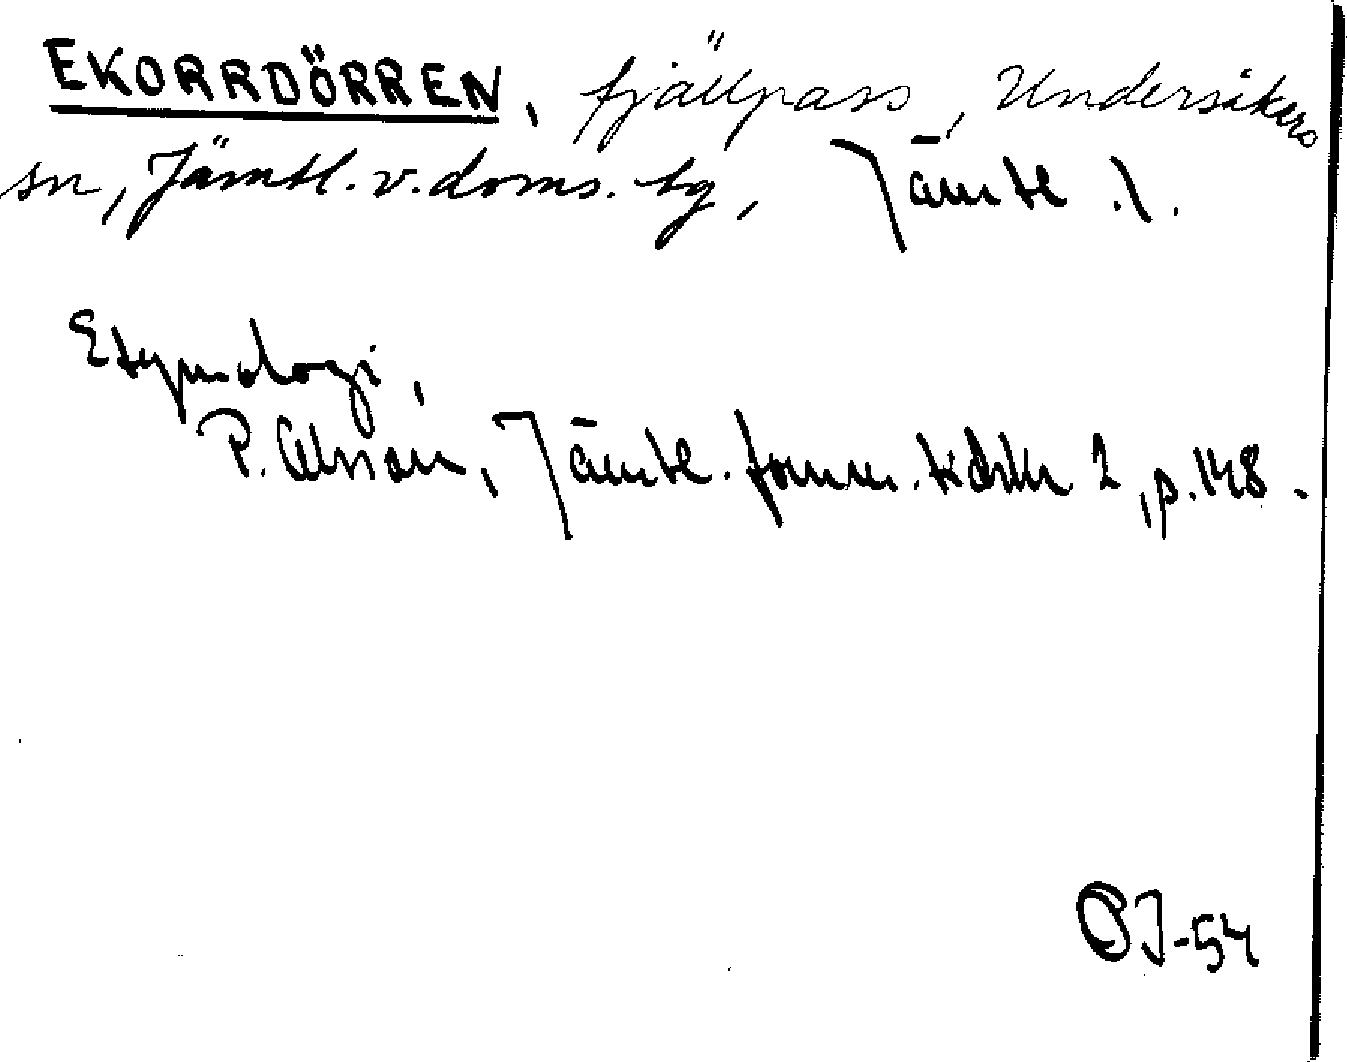 EKORRDÖRREN, fjällpass, Undersåkers
sn, Jämtl. v. doms. hg, Jämtl. l.
Etymologi,
P. Olsson, Jämtl. fornm. tidskr 2, p. 148.
OJ-54